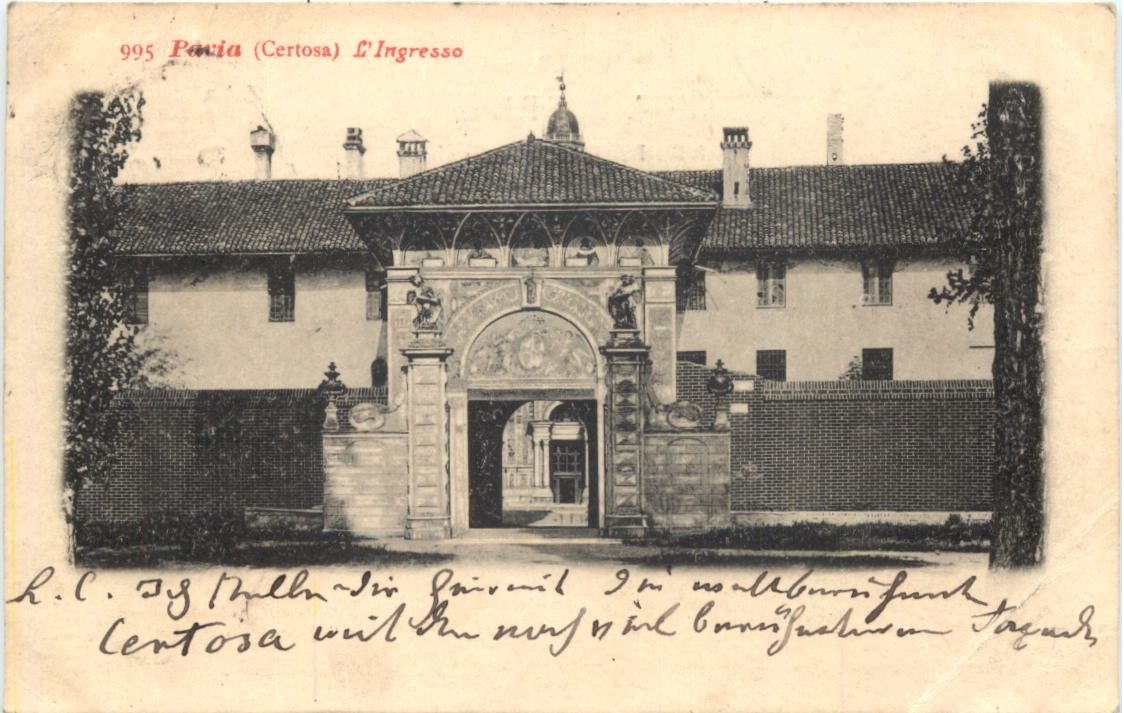 995 Pavia (Certosa) L'Ingresso
L. C. Ich stelle dir hiermit die weltberühmte
Certosa mit der noch viel berühmteren Façade